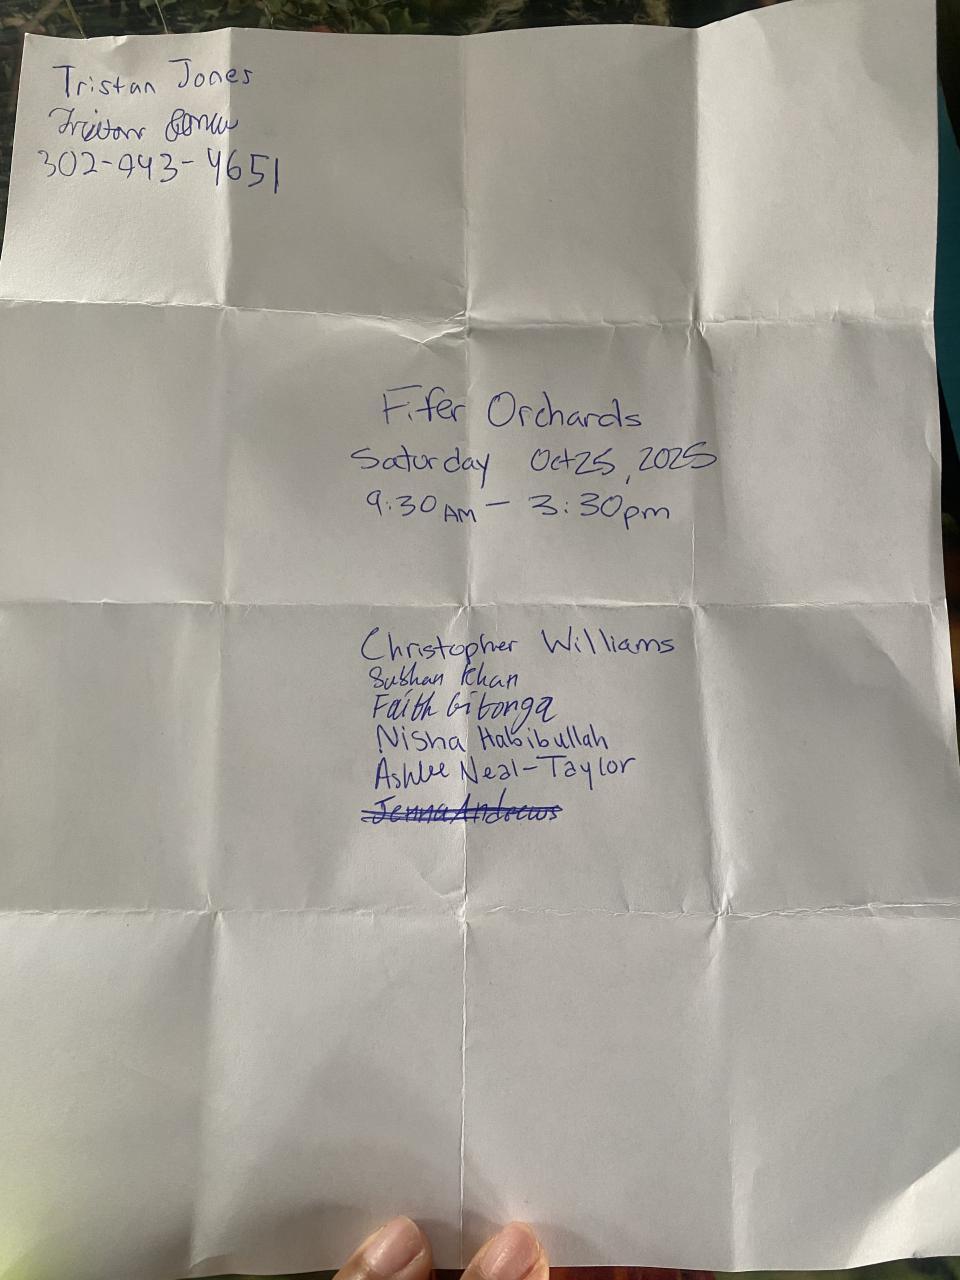 Tristan Jones
Tristan Jones
302-943-4651
Fifer Orchards
Saturday Oct 25, 2025
9:30 AM - 3:30pm
Christopher Williams
Subhan Khan
Faith Gitonga
Nisha Habibullah
Ashlee Neal-Taylor
Jenna Andrews